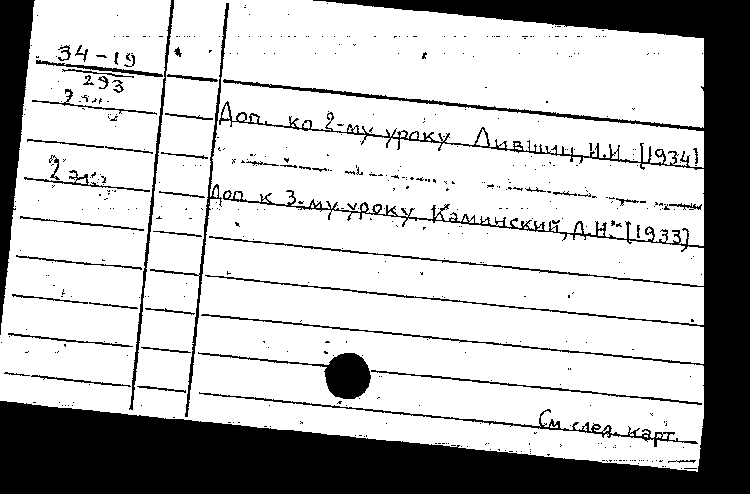 34-19
293
2 экз
Доп. ко 2-му уроку Лившиц, И.И. [1934]
2 экз
Доп к 3-му уроку Каминский, Д.Н. [1933]
См. след. карт.